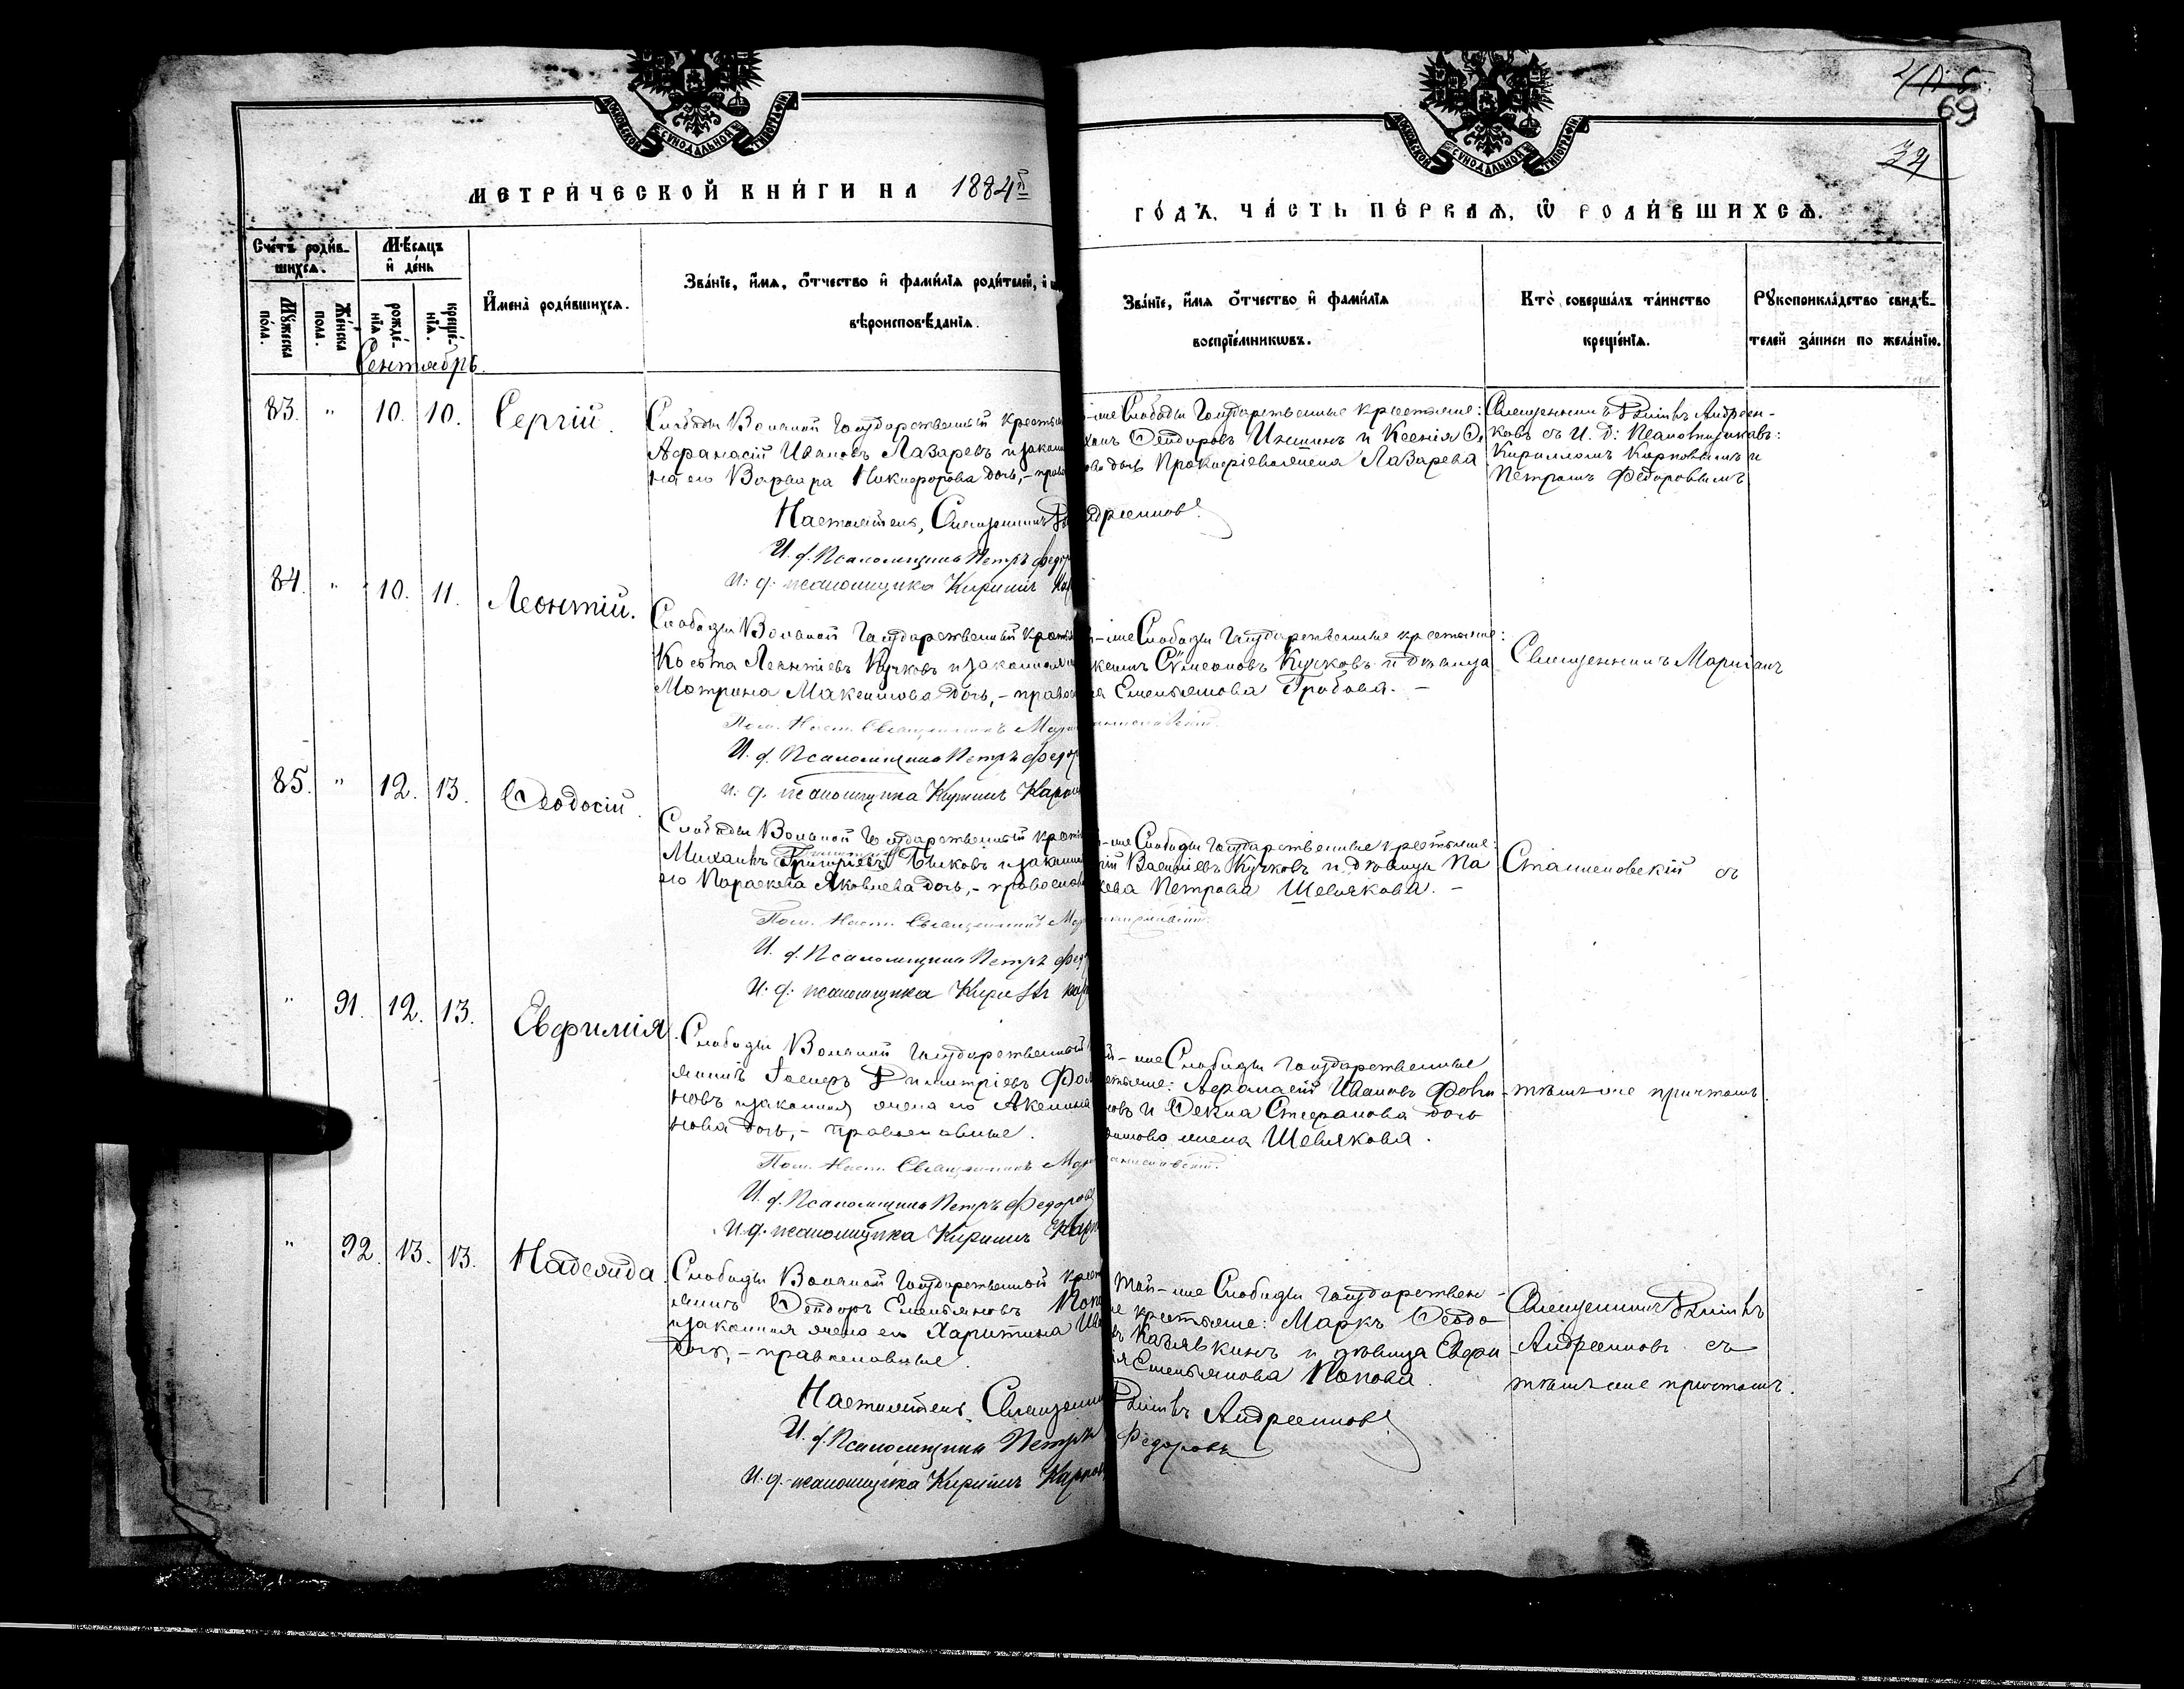 69
34
МОСКОВСКОЙ СѴНОДАЛЬНОЙ ТИПОГРАФІИ
МОСКОВСКОЙ СѴНОДАЛЬНОЙ ТИПОГРАФІИ
МЕТРИ́ЧЕСКОЙ КНИ́ГИ НА 1884й
ГО́ДЪ, ЧА́СТЬ ПЕ́РВАѦ, Ѽ РОДИ́ВШИХСѦ.
Сче́тъ роди́в-
шихсѧ.
Мꙋ́жеска по́ла.
Же́нска пола.
Мѣ́сѧцъ и҆ де́нь
рожде́-нїѧ.
креще́-нїѧ.
И҆мена̀ роди́вшихсѧ.
Зва́нїе, и҆́мѧ, ѻ҆́тчество и҆ фами́лїѧ роди́телей, и҆
вѣроисповѣ́данїѧ.
Зва́нїе, и҆́мѧ ѻ҆́тчество и҆ фами́лїѧ
воспрїе́мникѡвъ.
Кто̀ соверша́лъ та́инство
креще́нїѧ.
Рꙋкоприкла́дство свидѣ́-
телей за́писи по жела́нїю.
Сентябрь.
83. " 10. 10. Сергій.
Слободы Волчьей Государственный крестья
Афанасій Ивановъ Лазаревъ и закон
на его Варвара Никифорова дочь,- прав
-ше Слободы Государственные крестьяне:
Феодоровъ Иншинъ и Ксенія
дочь Прокофіева жена Лазарева
Священникъ Димитр Андреен-
ковъ съ И. д: Псаломщиковъ:
Кирилломъ Карповымъ и
Петромъ Федоровымъ
Настоятель, Священникъ
И. д. Псаломщика Петръ Федор
И. д. псаломщика Кирилъ Кар
84. " 10. 11. Леонтій.
Слободы Волчьей Государственный крестья
Косьма Леонтіевъ Кучковъ и законная
Мотрона Максимова дочь,- право
-ше Слободы Государственные крестьяне:
Сѵмеоновъ Кучковъ и дѣвица
Емельянова Гробова.-
Священникъ Маріанъ
Пом. Наст. Священникъ Мар
И. д. Псаломщика Петръ Федор
И. д. псаломщика Кирилъ Карпов
85. " 12. 13. Ѳеодосій.
Слободы Волчьей Государственный крестья
Михаилъ Быковъ и законная
его Параскева Яковлева дочь,- православ
-ше Слободы Государственные крестьяне:
Васильевъ Кучковъ и дѣвица Па
Петрова Шевлякова.-
Станиловскій съ
Пом. Наст. Священникъ Мар
И. д. Псаломщика Петръ Фед
И. д. псаломщика Кирилъ Кар
" 91. 12. 13. Евфимія.
Слободы Волчьей Государственный
янинъ Іосифъ Димитріевъ Фом
новъ и законная жена его Акелина
нова дочь,- православные.
-ше Слободы Государственные
Афанасій Ивановъ Фоми-
новъ и Ѳекла Стефанова дочь
жена Шевлякова.
тѣмъ же причтомъ.
Пом. Наст. Священникъ Мар
И. д. Псаломщика Петръ Федоров
И. д. псаломщика Кирилъ Карп
" 92. 13. 13. Надежда.
Слободы Волчьей Государственный крест
янинъ Феодоръ Емельяновъ Попо
и законная жена его Харитина Ива
дочь,- православные.
той-ше Слободы Государствен-
крестьяне: Маркъ Ѳеодо-
и дѣвица Евфи
Емельянова Попова.
Священникъ Димитр
Андреенковъ съ
тѣмъ же причтомъ.
Настоятель, Священникъ Димитр Андреенковъ
И. д. Псаломщика Петръ Федоровъ
И. д. псаломщика Кирилъ Карпов